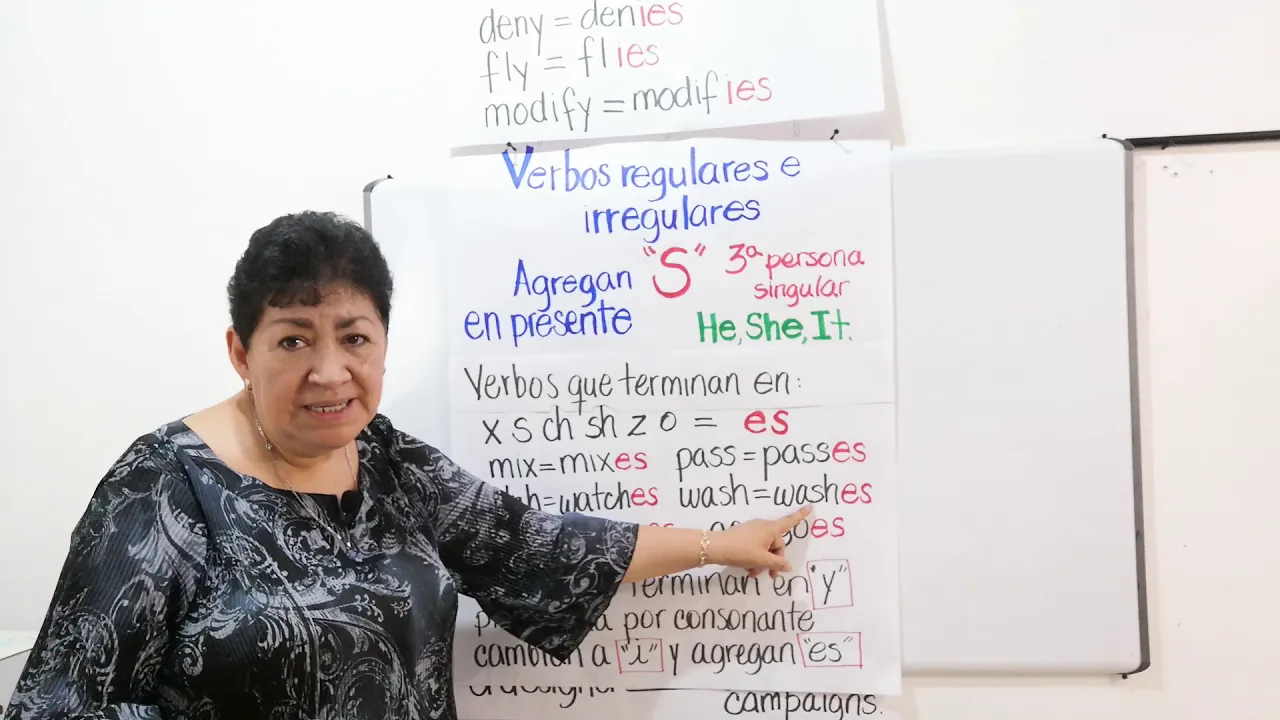 deny = denies
fly = flies
modify = modifies
Verbos regulares e
irregulares
Agregan "S" 3ª persona
singular
en presente He, She, It.
Verbos que terminan en:
x s ch sh z o = es
mix=mixes pass=passes
=watches wash=washes
es goes
terminan en "y"
por consonante
cambian a "i" y agregan "es"
campaigns.